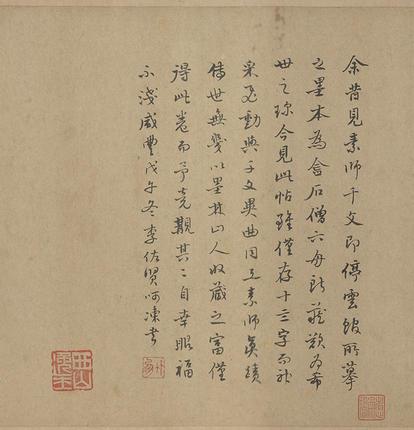 余昔見素師千文即停雲館所摹
之墨本為金石僧六舟所藏歎為希
世之珍今見此帖雖僅存十三字而神
采飛動與千文異曲同工素師真蹟
傳世無幾以墨林山人收藏之富僅
得此卷而予竟觀其二自幸眼福
不淺咸豐戊午冬李佐賢呵凍書